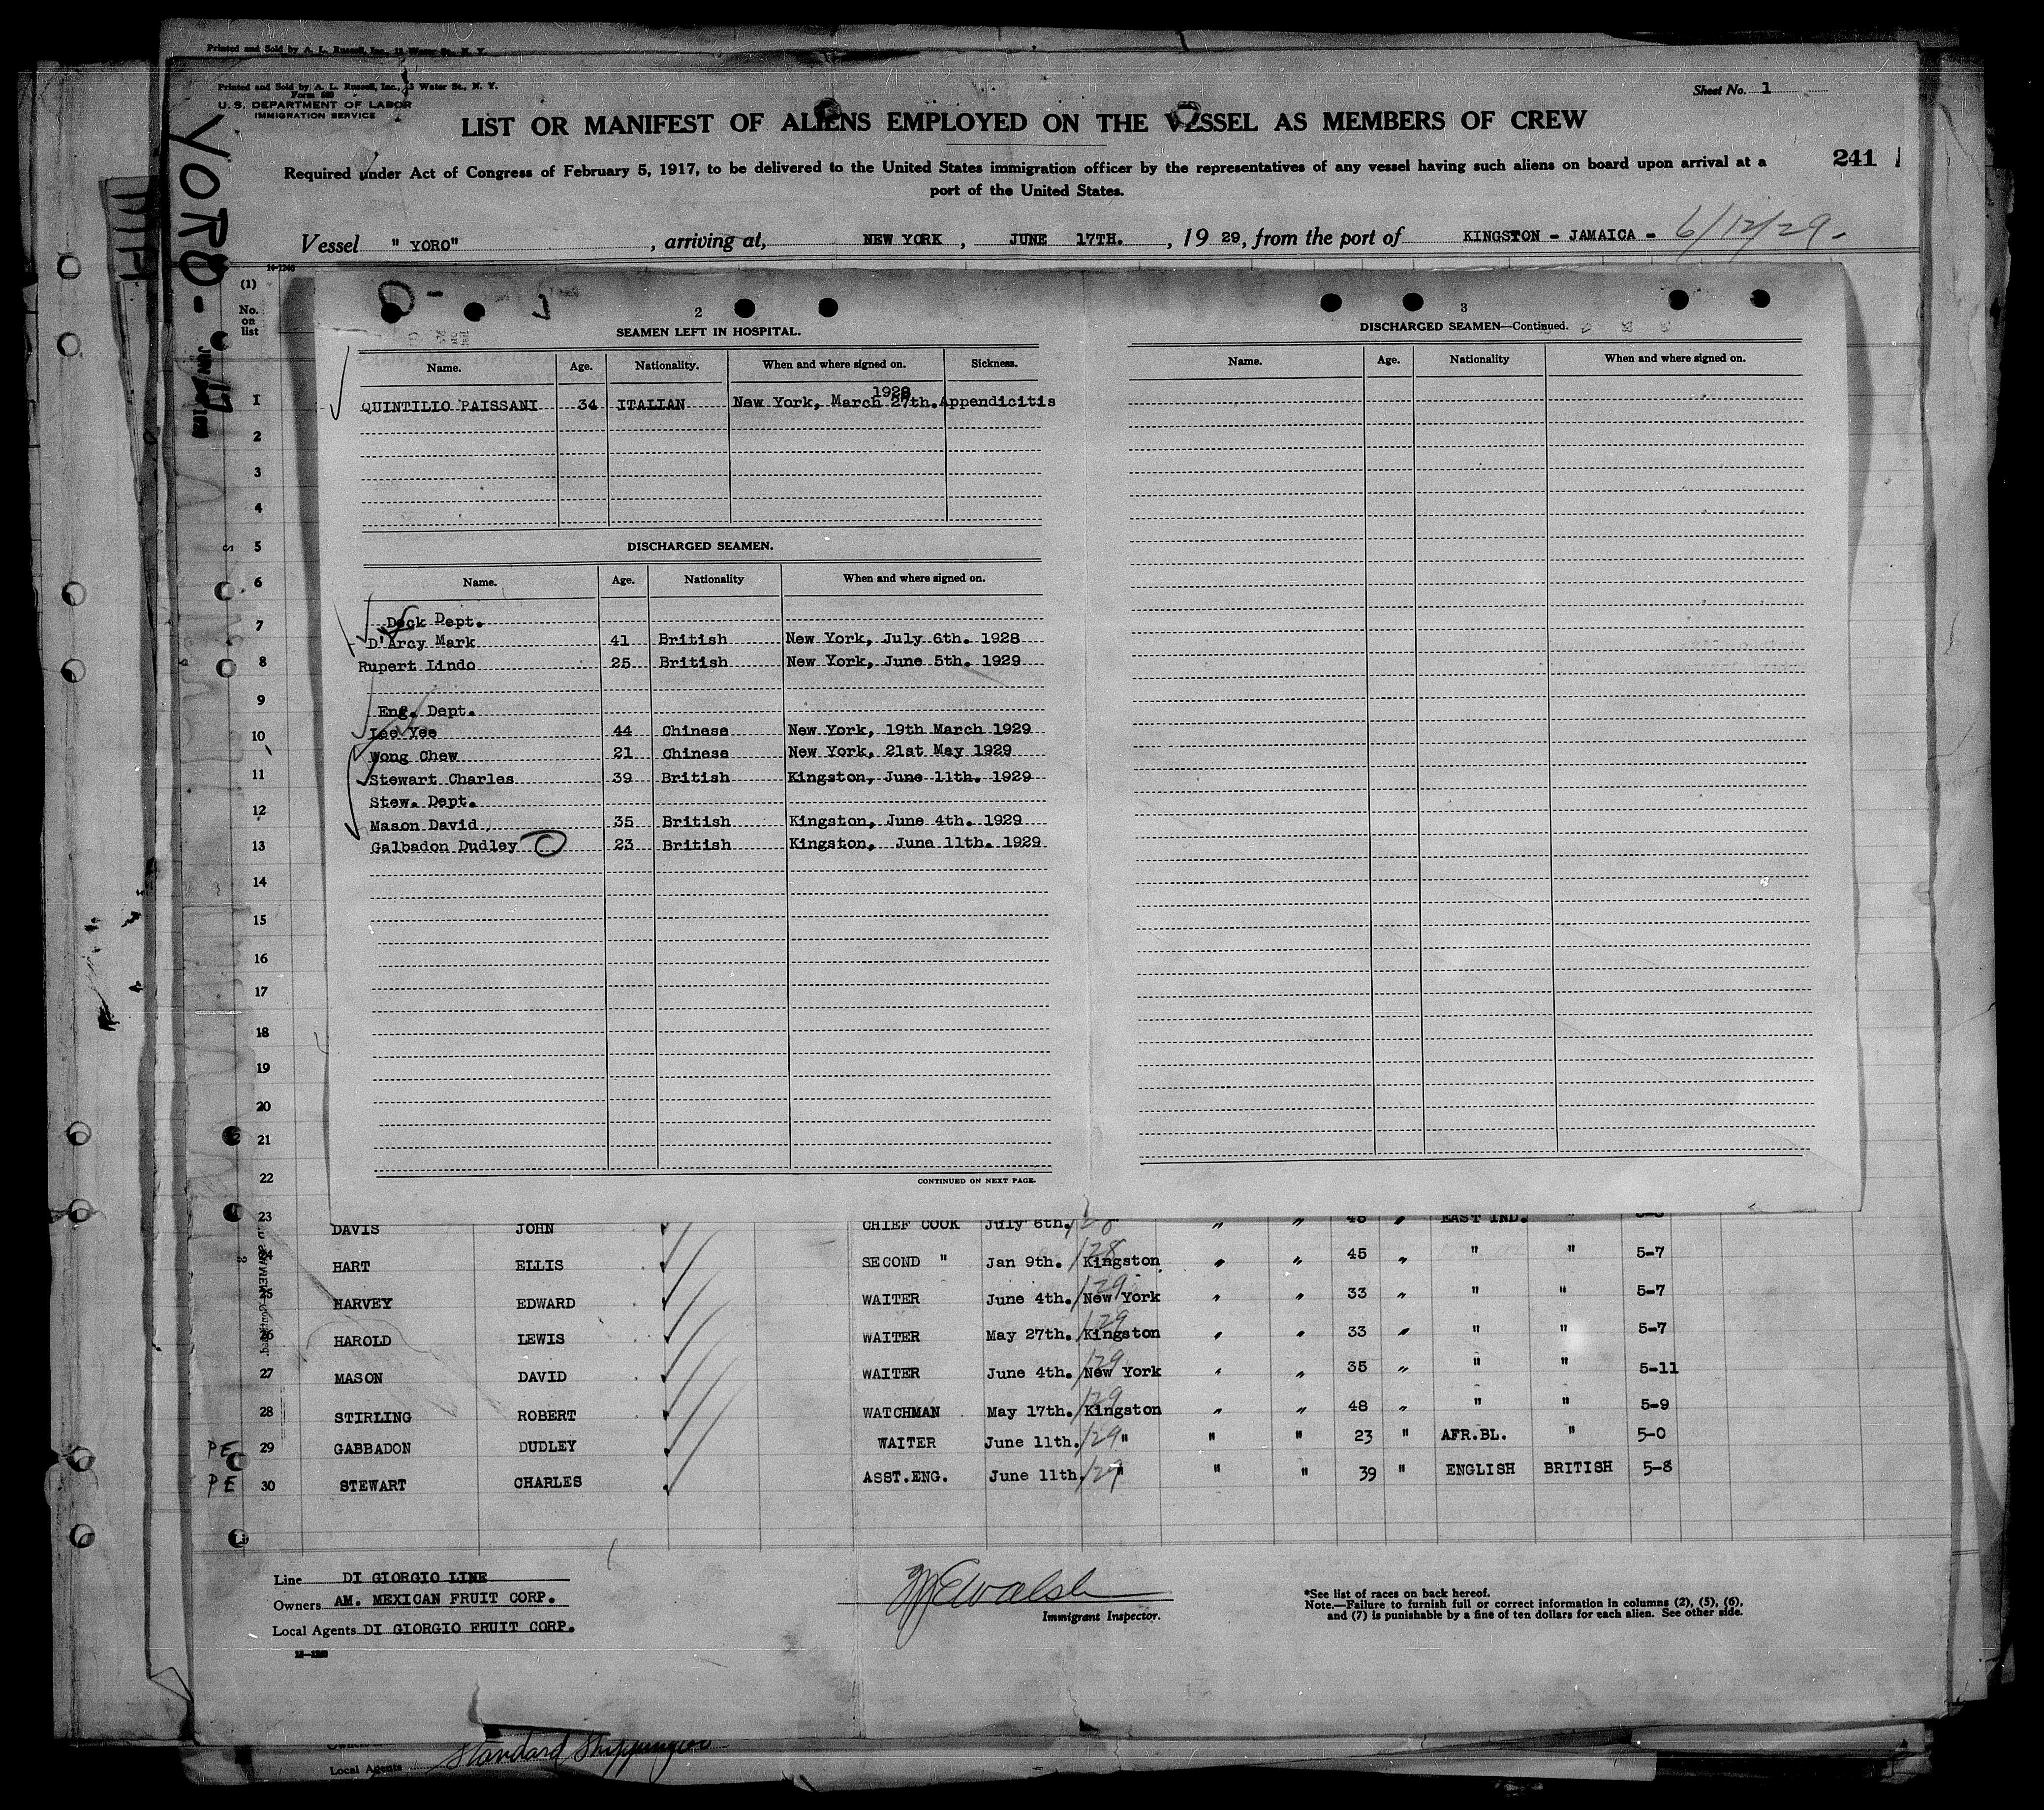 Printed and Sold by A. L. Russell, Inc., 13 Water St., N. Y.
Printed and Sold by A. L. Russell, Inc., 13 Water St., N. Y.
Form 680
U. S. DEPARTMENT OF LABOR
IMMIGRATION SERVICE
Sheet No. 1
LIST OR MANIFEST OF ALIENS EMPLOYED ON THE VESSEL AS MEMBERS OF CREW
241
Required under Act of Congress of February 5, 1917, to be delivered to the United States immigration officer by the representatives of any vessel having such aliens on board upon arrival at a
port of the United States.
Vessel " YORO" , arriving at, NEW YORK , JUNE 17TH. , 19 29, from the port of KINGSTON - JAMAICA - 6/12/29.-
YORO-
JUN 17
14-1240
(1)
No. on list
2
SEAMEN LEFT IN HOSPITAL.
Name. Age. Nationality. When and where signed on. Sickness.
1928
QUINTILIO PAISSANI 34 ITALIAN New York, March 27th. Appendicitis
DISCHARGED SEAMEN.
Name. Age. Nationality When and where signed on.
Deck Dept.
D'Arcy Mark 41 British New York, July 6th. 1928
Rupert Lindo 25 British New York, June 5th. 1929
Eng. Dept.
Lee Yee 44 Chinese New York, 19th March 1929
Wong Chew 21 Chinese New York, 21st May 1929
Stewart Charles 39 British Kingston, June 11th. 1929
Stew. Dept.
Mason David 35 British Kingston, June 4th. 1929
Galbadon Dudley 23 British Kingston, June 11th. 1929
CONTINUED ON NEXT PAGE.
3
DISCHARGED SEAMEN—Continued.
Name. Age. Nationality When and where signed on.
1
2
3
4
5
6
7
8
9
10
11
12
13
14
15
16
17
18
19
20
21
22
23 DAVIS JOHN CHIEF COOK July 6th. /28 " " 48 " EAST IND. "
24 HART ELLIS SECOND " Jan 9th. /28 Kingston " " 45 " " " 5-7
25 HARVEY EDWARD WAITER June 4th. /29 New York " " 33 " " " 5-7
26 HAROLD LEWIS WAITER May 27th. /29 Kingston " " 33 " " " 5-7
27 MASON DAVID WAITER June 4th. /29 New York " " 35 " " " 5-11
28 STIRLING ROBERT WATCHMAN May 17th. /29 Kingston " " 48 " " " 5-9
PE 29 GABBADON DUDLEY WAITER June 11th. /29 " " " 23 " AFR.BL. " 5-0
PE 30 STEWART CHARLES ASST.ENG. June 11th. /29 " " " 39 " ENGLISH BRITISH 5-8
Line DI GIORGIO LINE
Owners AM. MEXICAN FRUIT CORP.
Local Agents DI GIORGIO FRUIT CORP.
Immigrant Inspector.
*See list of races on back hereof.
Note.—Failure to furnish full or correct information in columns (2), (5), (6),
and (7) is punishable by a fine of ten dollars for each alien. See other side.
Local Agents Standard Shipping co